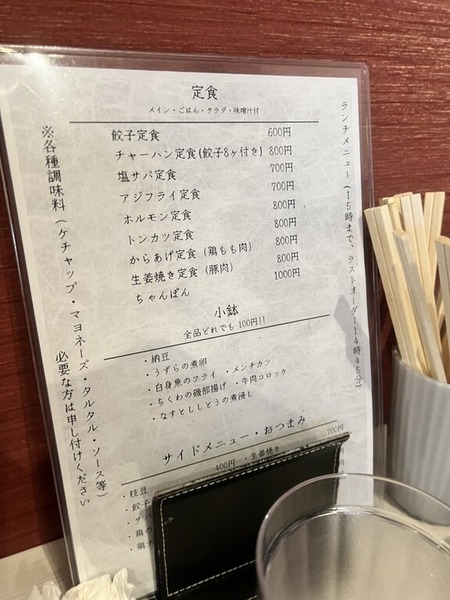 定食
メイン・ごはん・サラダ・味噌汁付
餃子定食 600円
チャーハン定食(餃子8ヶ付き) 800円
塩サバ定食 700円
アジフライ定食 700円
ホルモン定食 800円
トンカツ定食 800円
からあげ定食 (鶏もも肉) 800円
生姜焼き定食 (豚肉) 800円
ちゃんぽん 1000円
小鉢
全品どれでも 100円!!
・納豆
・うずらの煮卵
・白身魚のフライ ・メンチカツ
・ちくわの磯部揚げ ・牛肉コロッケ
・なすとししとうの煮浸し
サイドメニュー・おつまみ
・枝豆 400円 ・生姜焼き 700円
・餃子
・鶏
・鶏
ランチメニュー(15時まで、ラストオーダー14時45分)
※各種調味料(ケチャップ・マヨネーズ・タルタル・ソース等)
必要な方は申し付けください